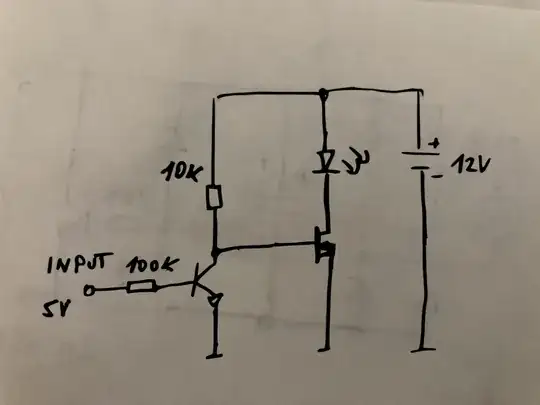 10K
+
12V
-
INPUT 100K
5V